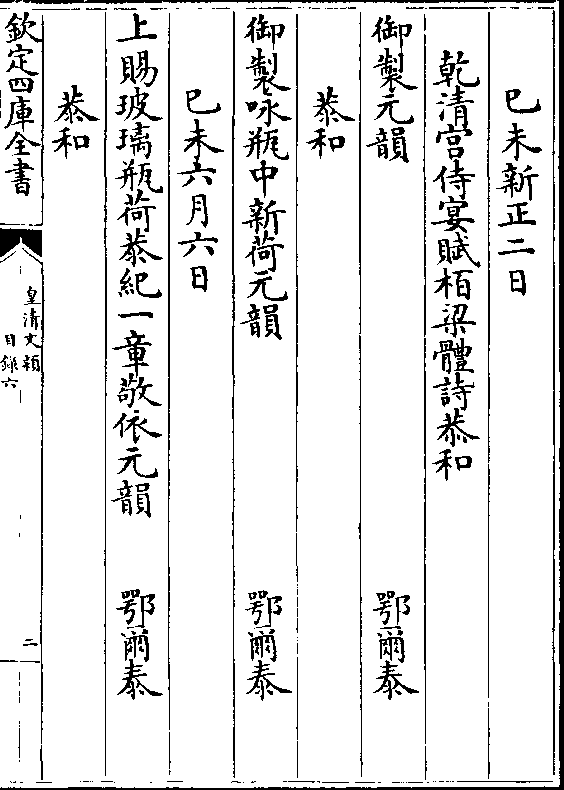 已未新正二日
乾清宫侍宴賦柏梁體詩恭和
御製元韻 鄂爾泰
恭和
御製咏瓶中新荷元韻 鄂爾泰
已未六月六日
上賜玻璃瓶荷恭紀一章敬依元韻 鄂爾泰
恭和
欽定四庫全書
皇清文穎
目錄六
二